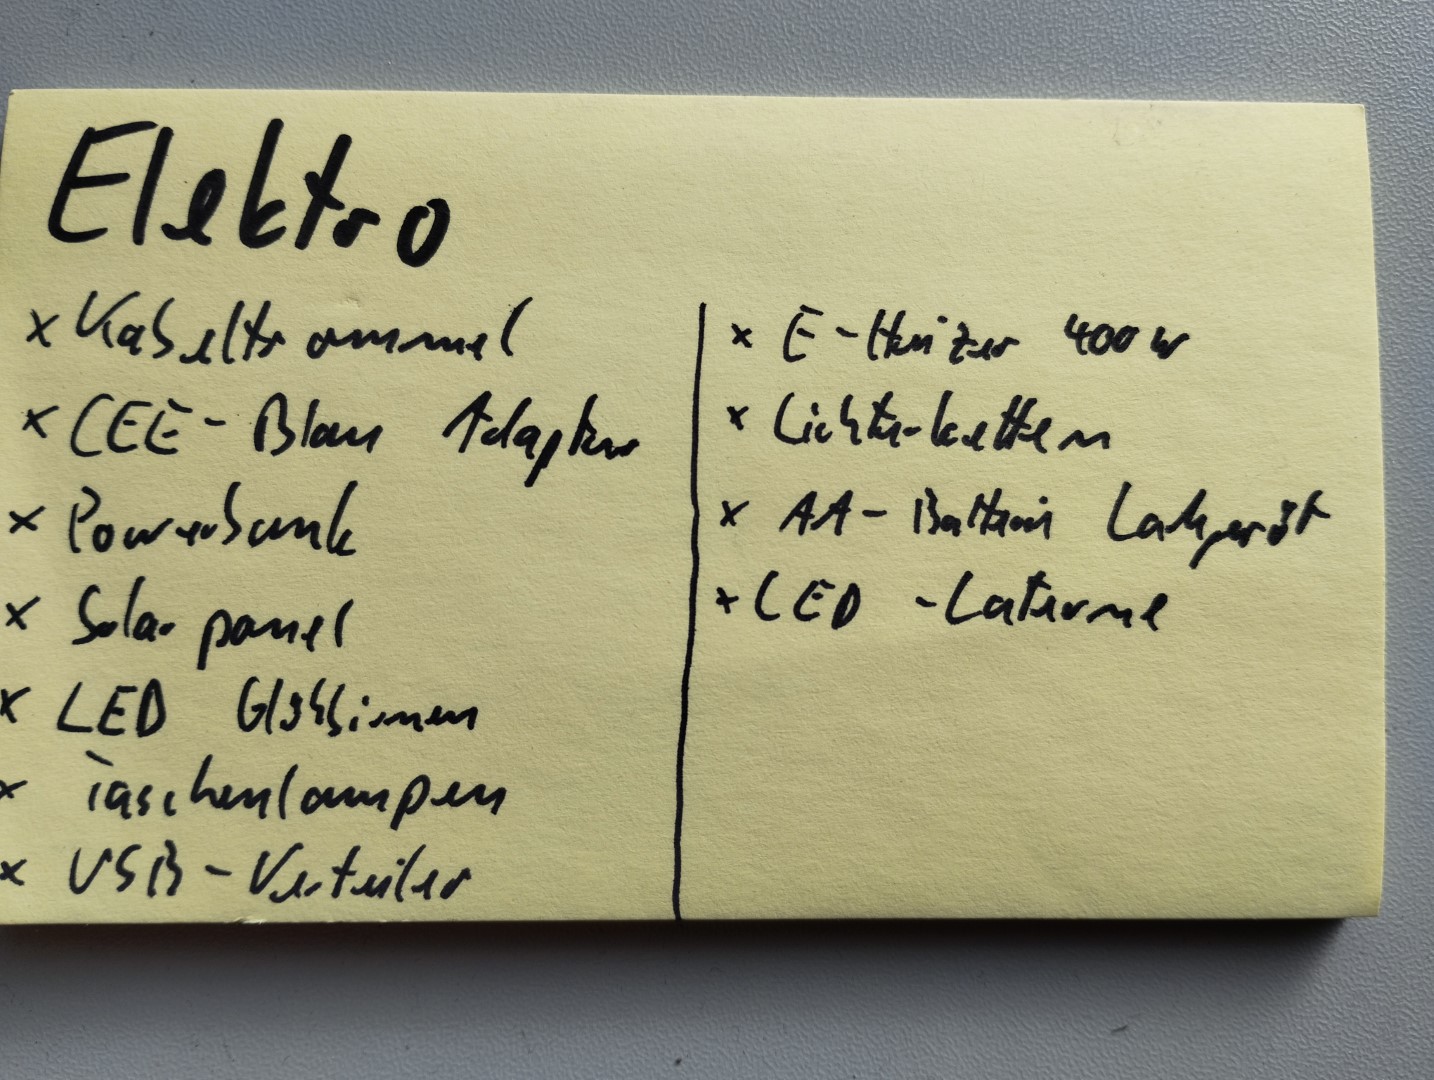 Elektro
x Kabeltrommel
x CEE-Blau Adapter
x Powerbank
x Solarpanel
x LED Glühbirnen
x Taschenlampen
x USB-Verteiler
x E-Heizer 400W
x Lichterketten
x AA-Batterie Ladegerät
x LED-Laterne